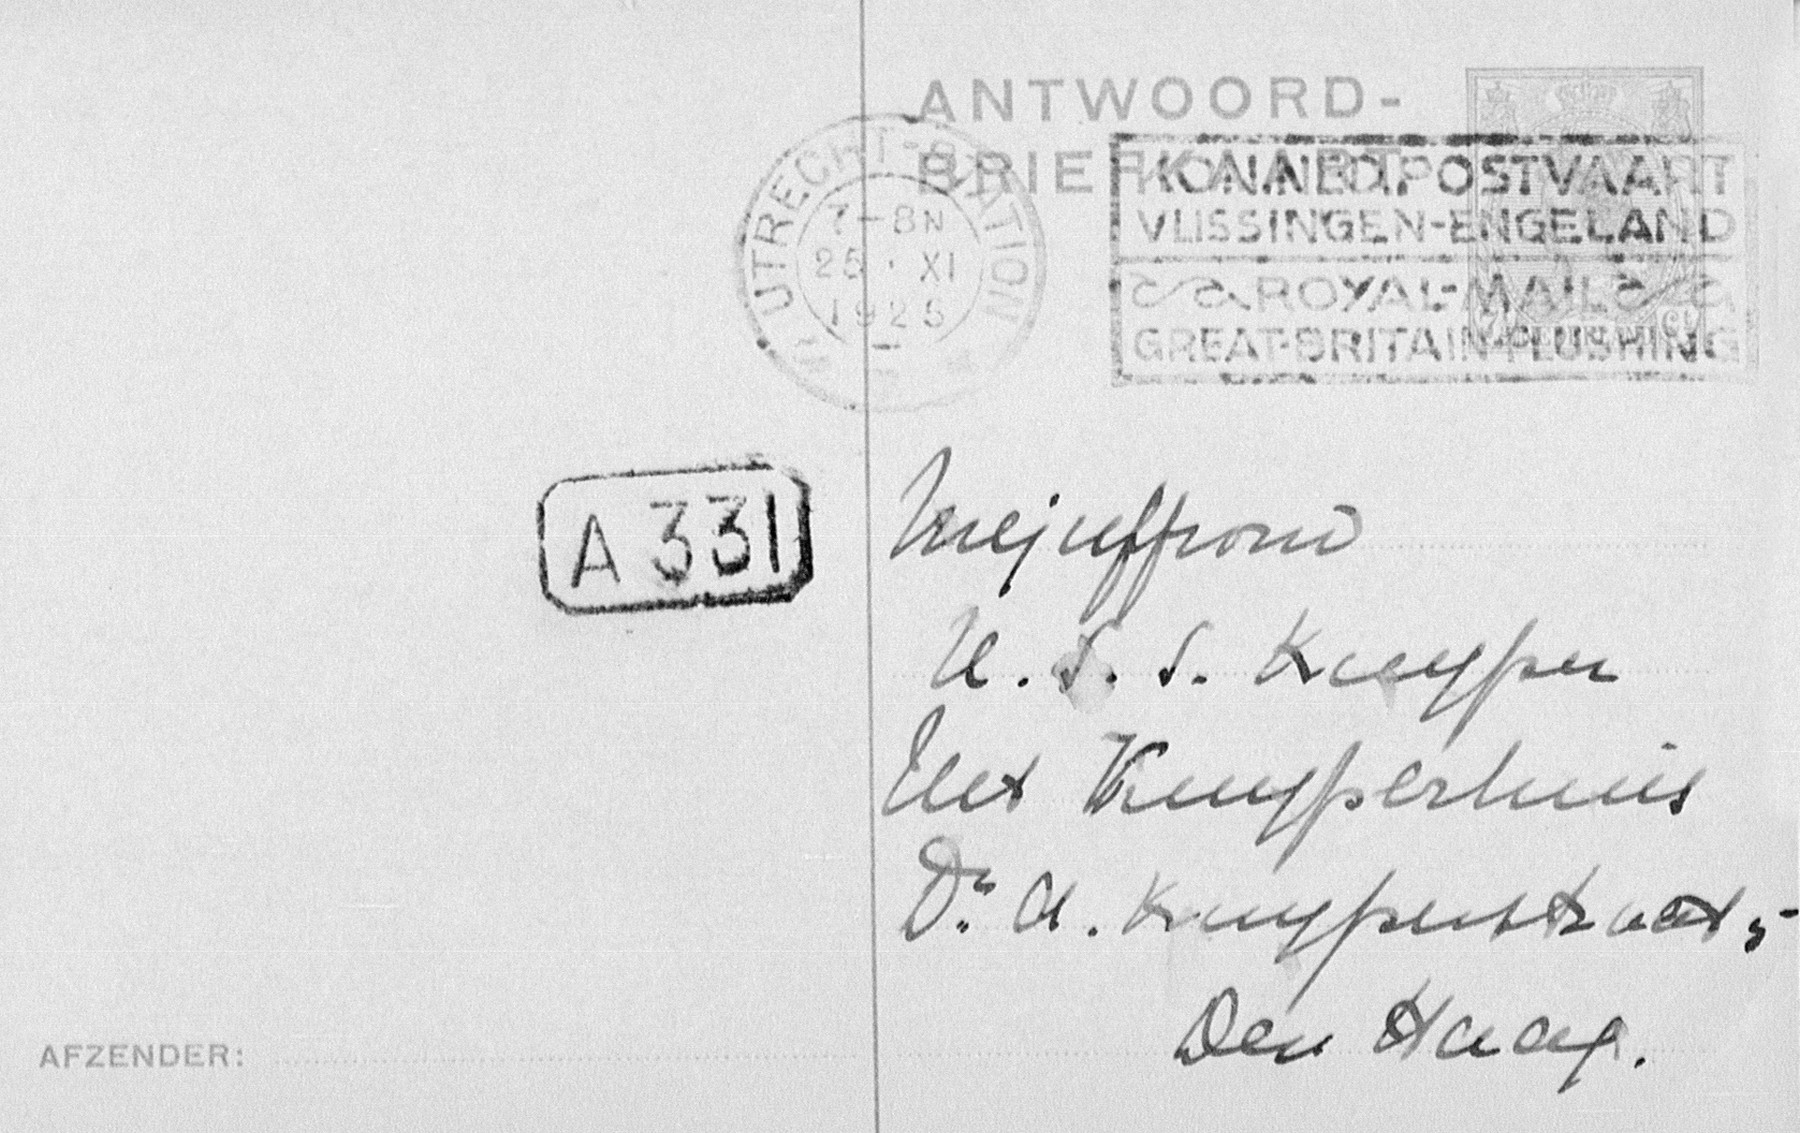 ANTWOORD-
BRIEFKAART
UTRECHT-STATION
7-8N
25 · XI
1925
KON.NED.POSTVAART
VLISSINGEN-ENGELAND
ROYAL-MAIL
GREAT-BRITAIN-FLUSHING
NEDERLAND
A 331
Mejuffrouw
H. S. S. Kuyper
Het Kuyperhuis
Dr. A. Kuyperstraat 5
Den Haag.
AFZENDER: